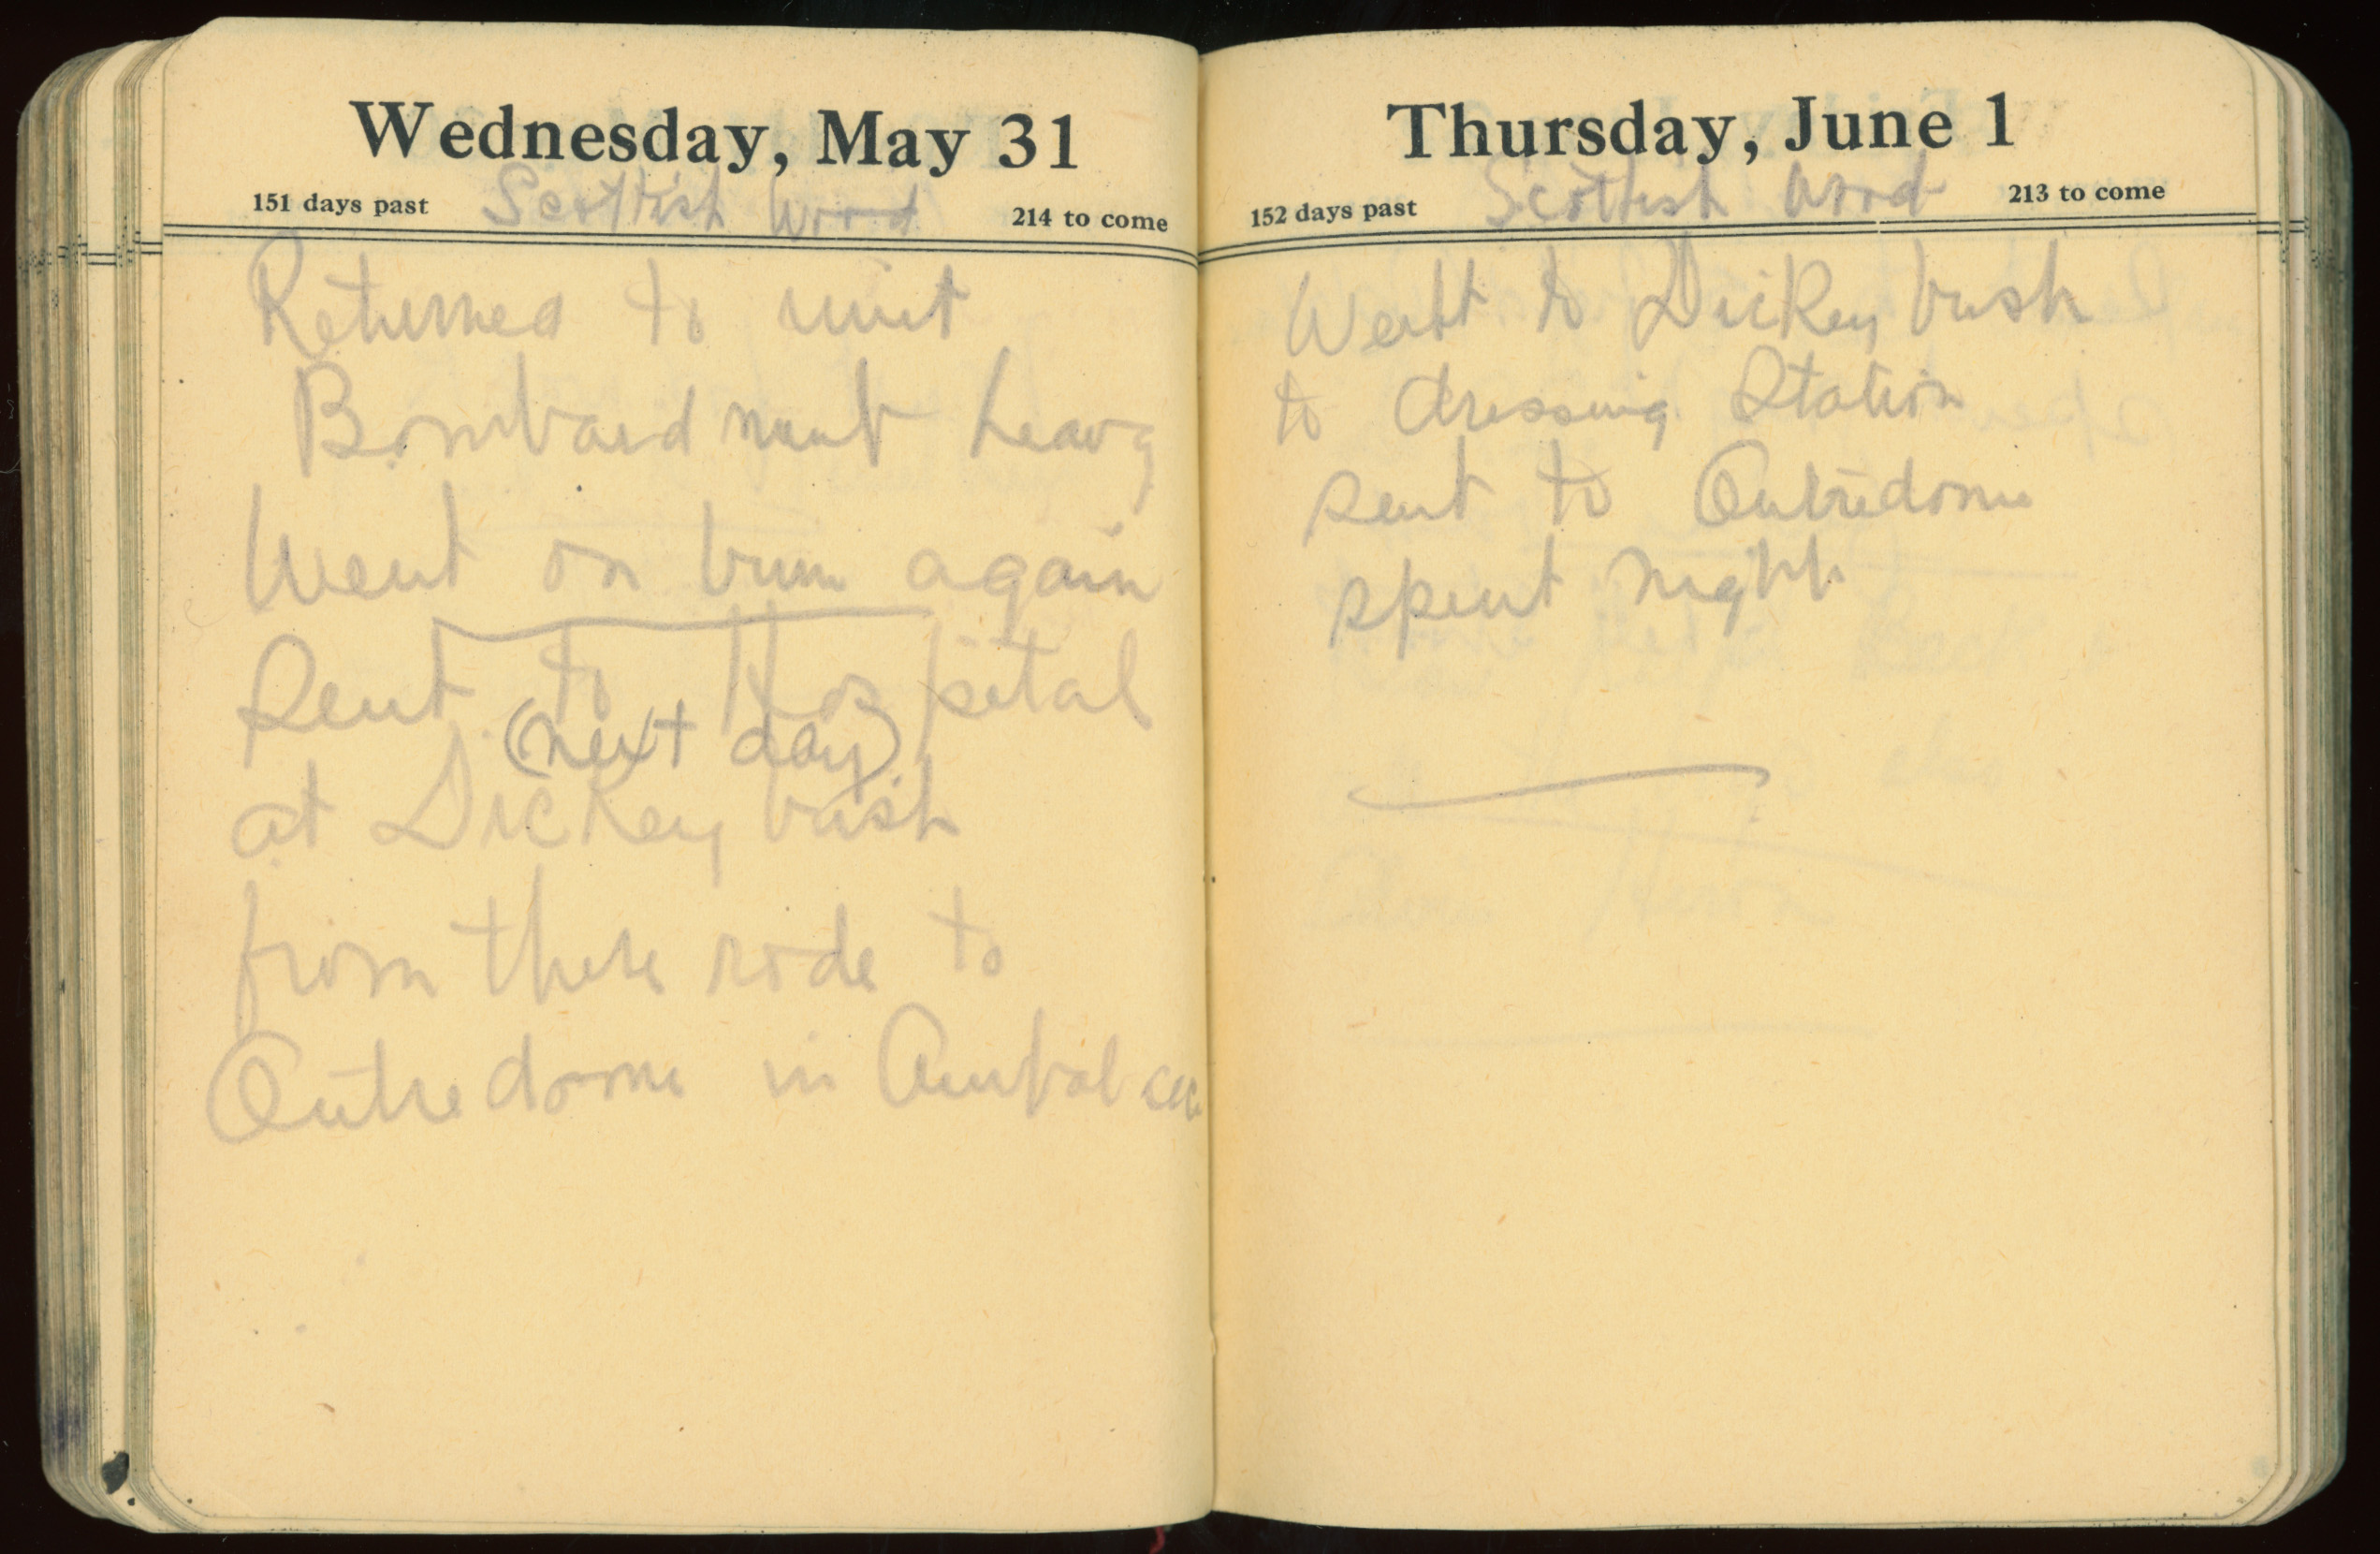 Wednesday, May 31
151 days past Scottish Wood 214 to come
Returned to unit
Bombardment heavy
Went on bum again
Sent to Hospital
(next day)
at Dickeybush
from there rode to
Outredome in
Thursday, June 1
152 days past Scottish Wood 213 to come
Went to Dickeybush
to dressing Station
sent to Outredome
spent night